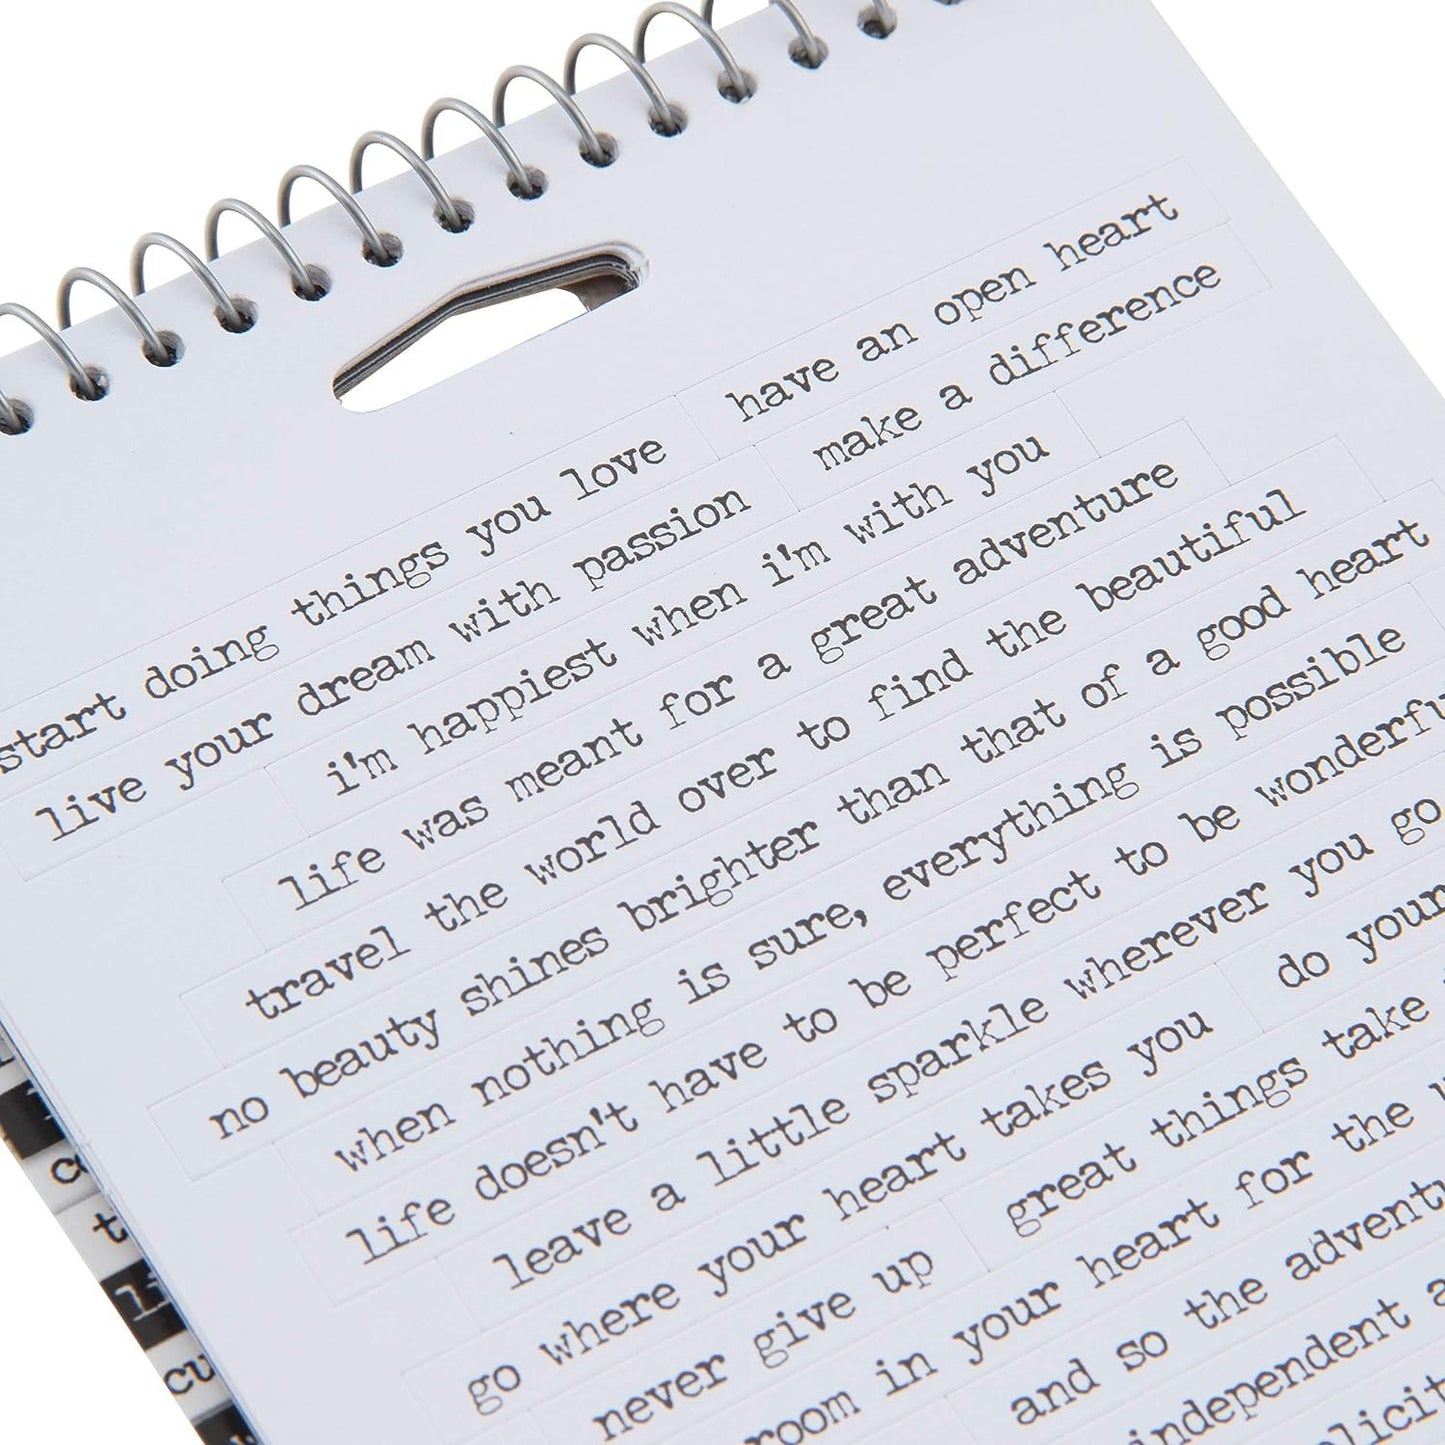 start doing things you love have an open heart
live your dream with passion make a difference
i'm happiest when i'm with you
life was meant for a great adventure
travel the world over to find the beautiful
no beauty shines brighter than that of a good heart
when nothing is sure, everything is possible
life doesn't have to be perfect to be wonderfu
leave a little sparkle wherever you go
go where your heart takes you do your
never give up great things take
room in your heart for the
and so the adventu
independent a